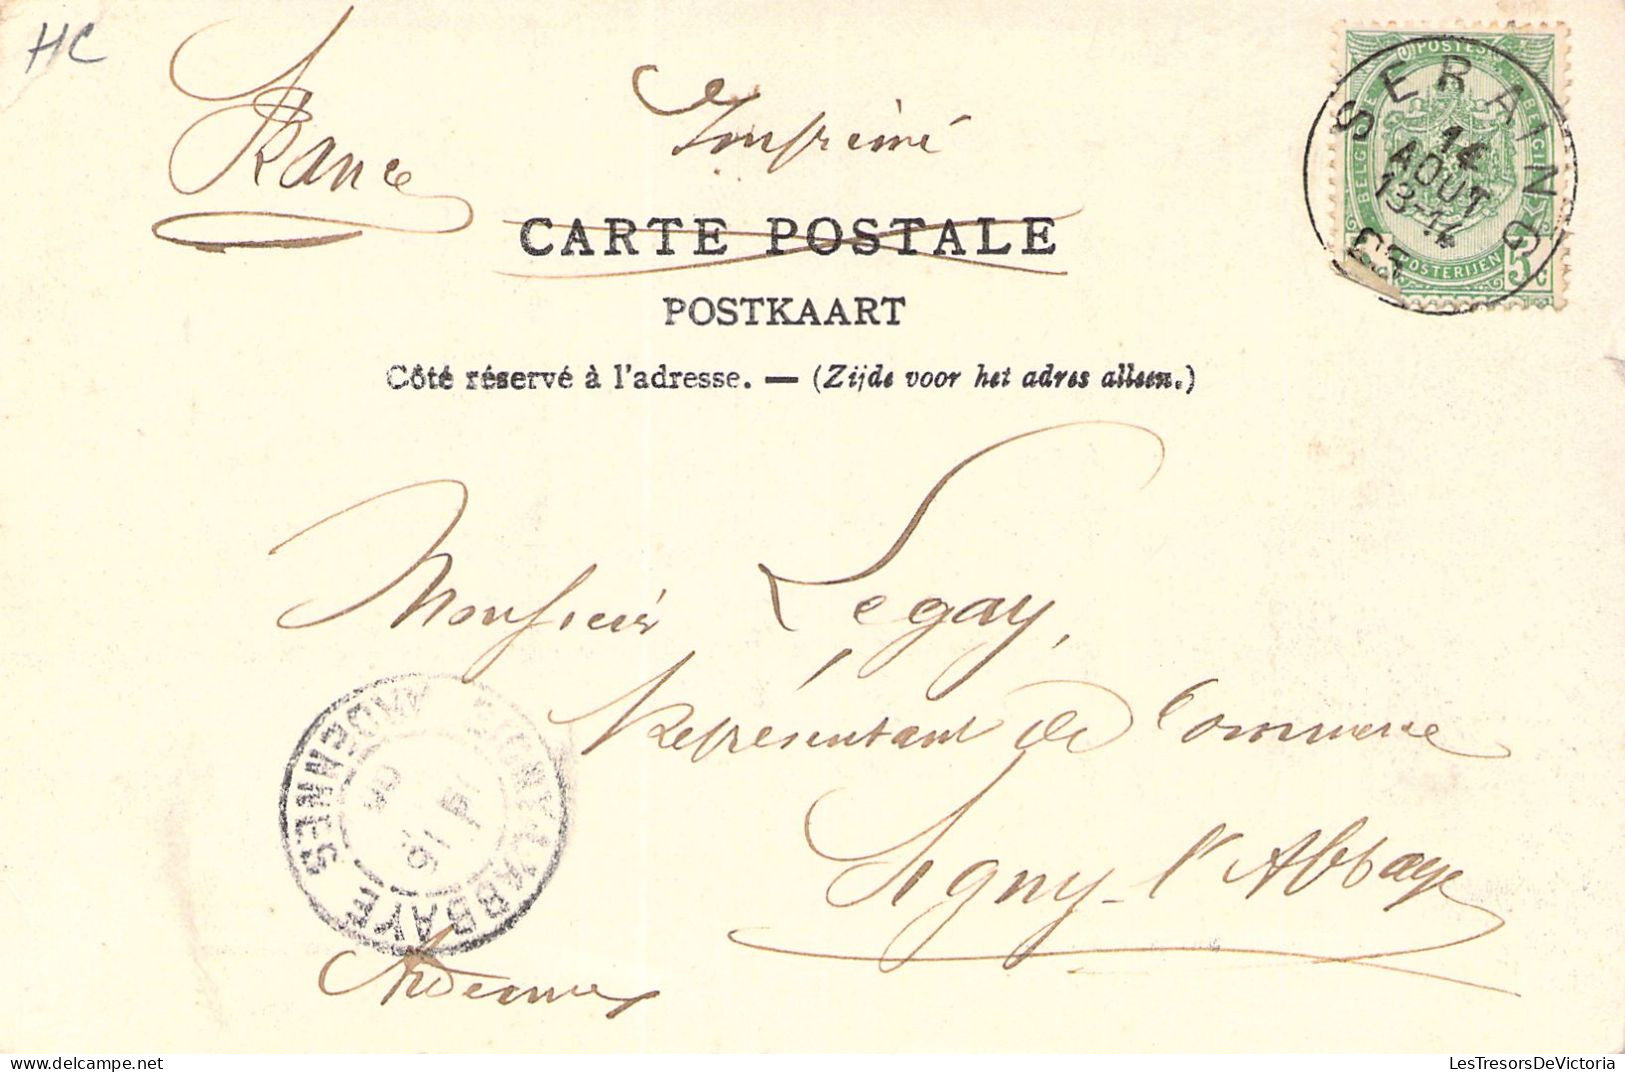 HC
France
Imprimé
CARTE POSTALE
POSTKAART
Côté réservé à l'adresse. — (Zijde voor het adres alleen.)
POSTES
BELGIQUE
BELGIË
POSTERIJEN
5c
SERAING
14
AOUT
13-14
Monsieur Legay,
Représentant de Commerce
Signy-l'Abbaye
Ardennes
SIGNY-L'ABBAYE
ARDENNES
LesTresorsDeVictoria